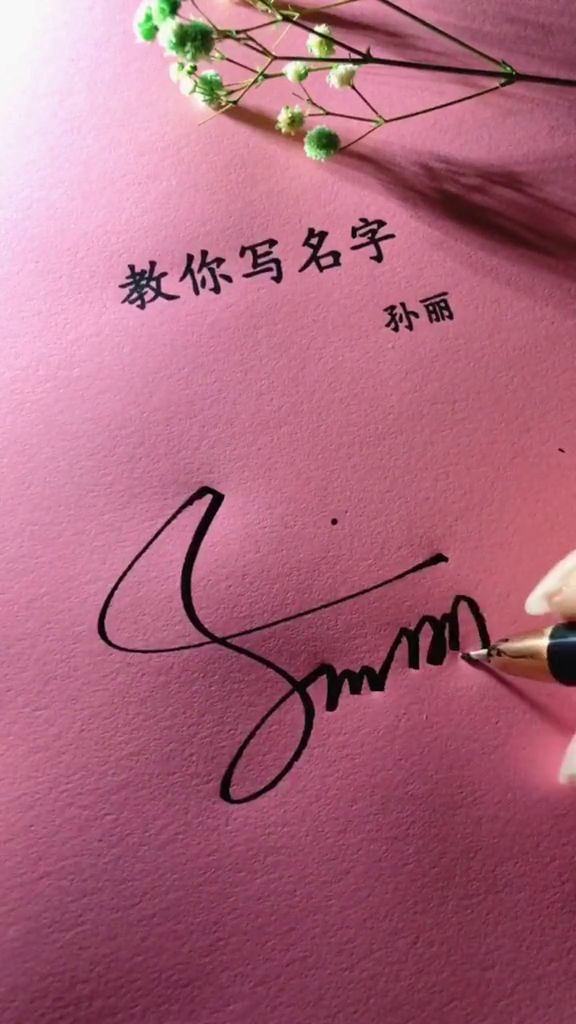 教你写名字
孙丽